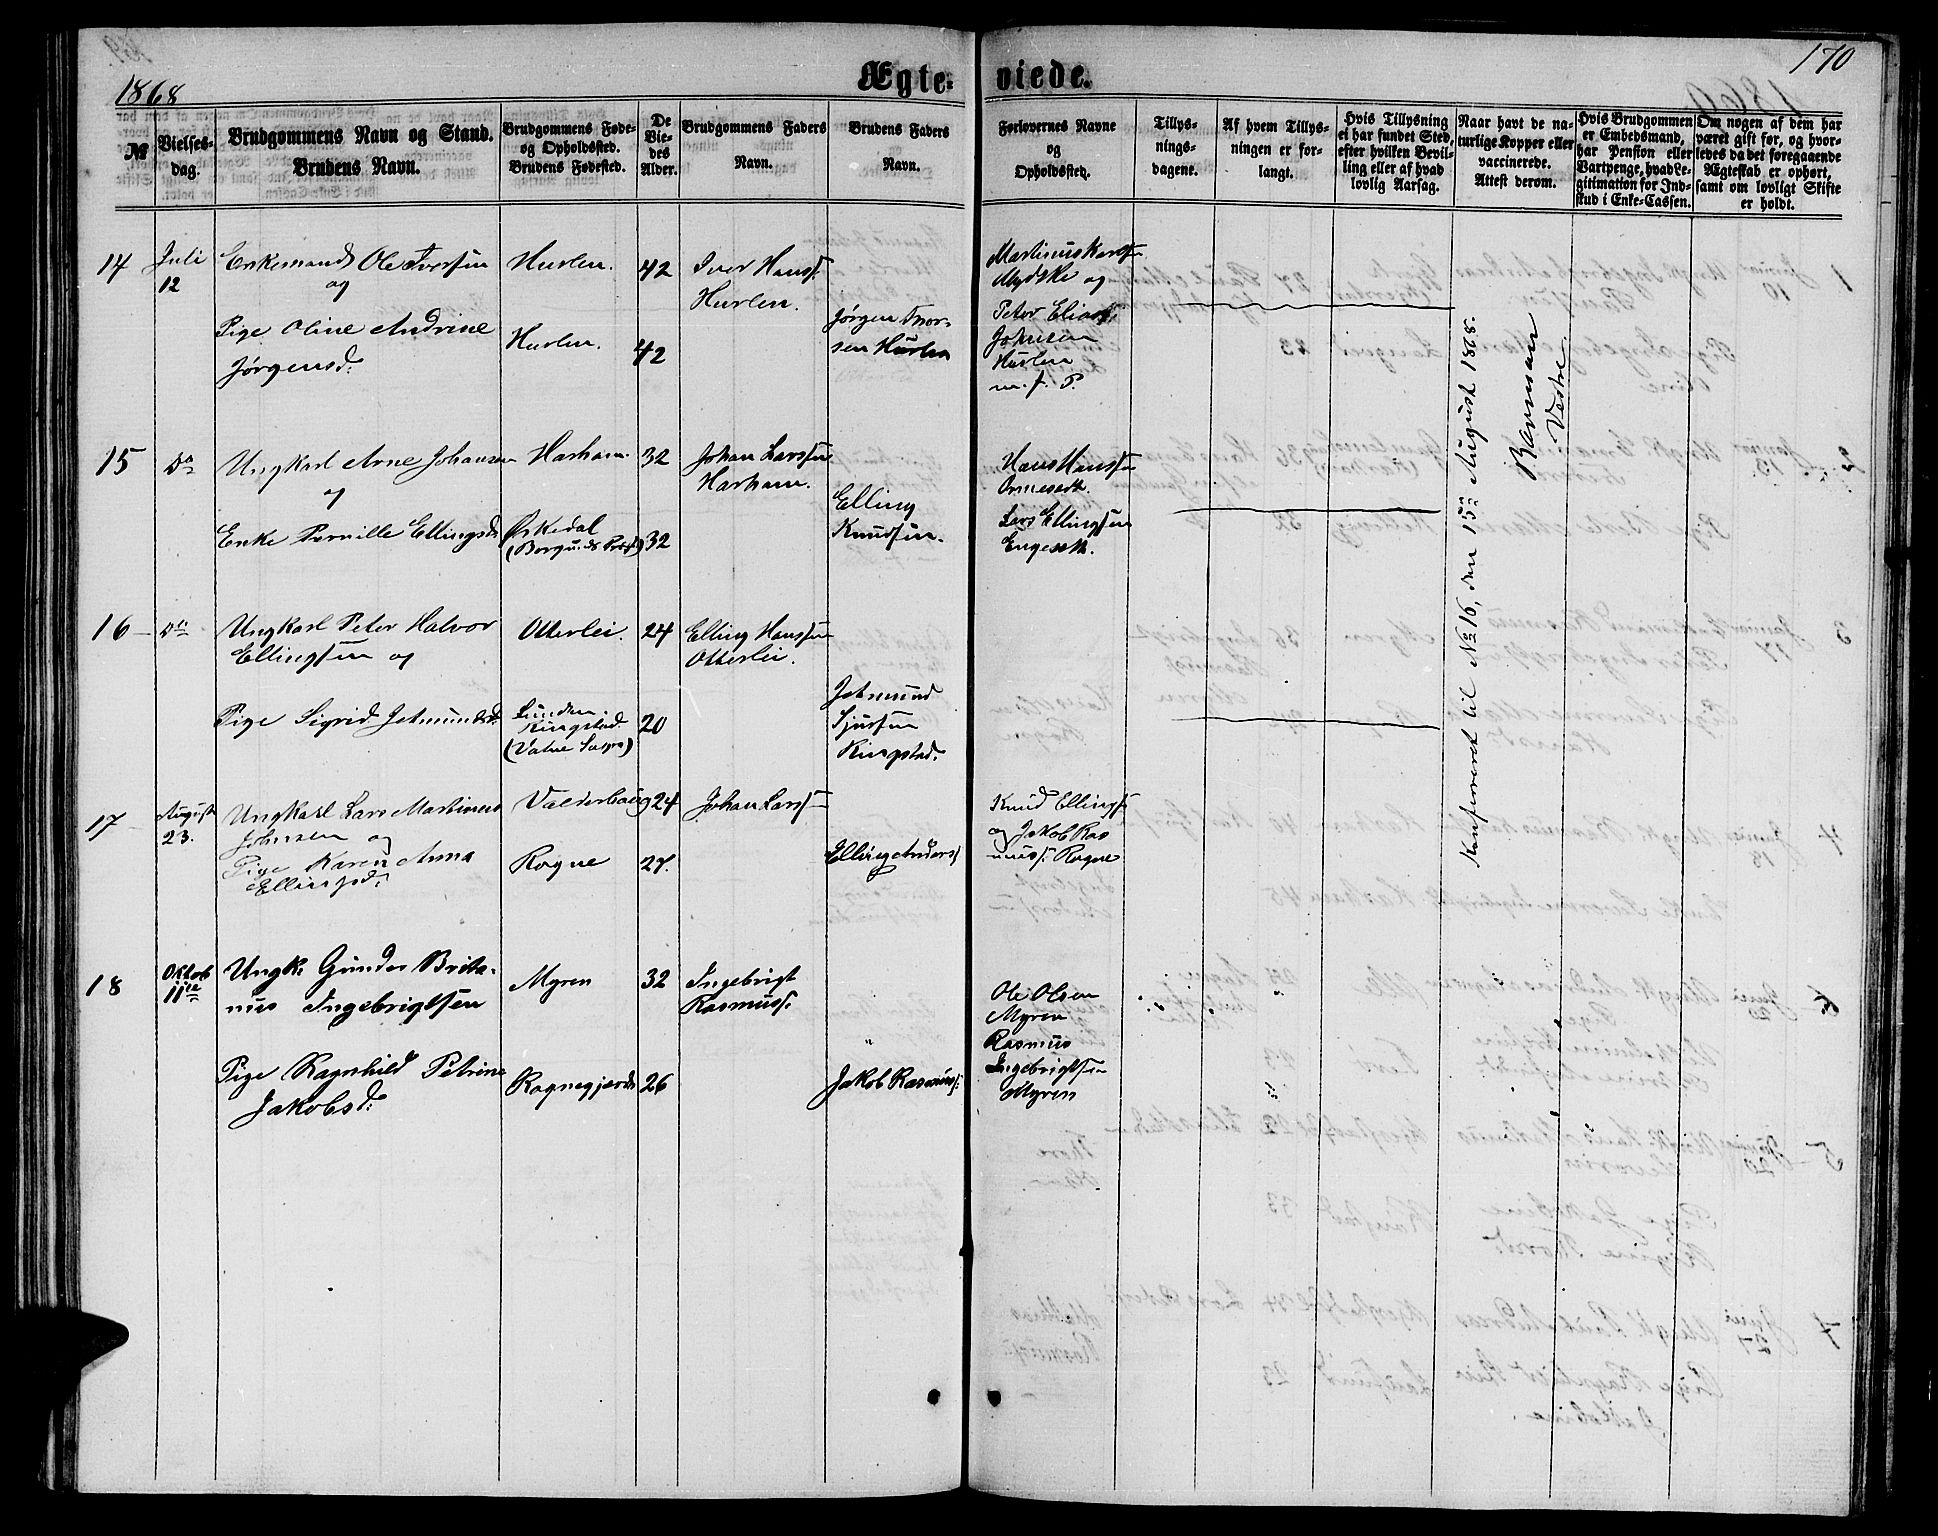 170
1868
Ægte-
viede.
№
Vielses-
dag.
Brudgommens Navn og Stand.
Brudens Navn.
Brudgommens Føde-
og Opholdssted.
Brudens Fødested.
De
Vie-
des
Alder.
Brudgommens Faders
Navn.
Brudens Faders
Navn.
Forlovernes Navne
og
Opholdssted.
Tillys-
nings-
dagene.
Af hvem Tillys-
ningen er for-
langt.
Hvis Tillysning
ei har fundet Sted,
efter hvilken Bevil-
ling eller af hvad
lovlig Aarsag.
Naar havt de na-
turlige Kopper eller
vaccinerede.
Attest derom.
Hvis Brudgommen
er Embedsmand,
har Pension eller
Vartpenge, hvad Le-
gitimation for Ind-
skud i Enke-Cassen.
Om nogen af dem har
været gift før, og hvor-
ledes da det foregaaende
Ægteskab er ophørt,
samt om lovligt Skifte
er holdt.
14
Juli
12
Enkemand Ole Iversen
og
Pige Oline Andrine
Jørgensd:
Hurlen.
Hurlen.
42
42
Iver Hanss:
Hurlen.
Jørgen Thor-
sen Hurlen
Martinus
Mydske og
Peter Elias
Johnsen
Hurlen
m. f. P.
15
Do
Ungkarl Arne Johansen
og
Enke Pernille Ellingsd:
Harham.
Ørskedal
(Borgunds Præst)
32
32
Johan Larssen
Harham.
Elling
Knudsen.
Hans Hanssen
Lars Ellingsen
Engeseth.
16
Do
Ungkarl Peter Halvor
Ellingsen og
Pige Sigrid Jetmundsd:
Otterlei.
Ringstad
(Vatne Sogn)
24
20
Elling Hanssen
Otterlei.
Jetmund
Sjursen
Ringstad.
17
August
23.
Ungkarl Lars Martinus
Johnsen og
Pige Karen Anna
Ellingsd:
Valderhoug
Rogne
24
27.
Johan Larss
Elling Anders
Knud Ellings
og Jakob Ras
muss: Rogne
18
Oktob
11te
Ungk: Gunder Brita-
nus Ingebrigtsen
Pige Ragnhild Petrine
Jakobsd:
Myren
Rognegjerde
32
26
Ingebrigt
Rasmuss:
Jakob Rasmuss:
Ole Olsen
Myren
Rasmus
Ingebrigtsen
Myren
Konfereret til № 16, den 15de August 1868.